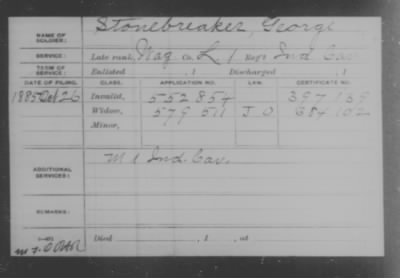 NAME OF SOLDIER: Stonebreaker, George
SERVICE: Late rank, Wag. Co. L, 1 Reg't Ind. Cav.
TERM OF SERVICE: Enlisted , 1 Discharged , 1
DATE OF FILING. CLASS. APPLICATION NO. LAW. CERTIFICATE NO.
1885 Oct 26 Invalid, 552854 397159
Widow, 579511 J.O 384102
Minor,
ADDITIONAL SERVICES: M 1 Ind. Cav.
REMARKS:
Died , 1 , at